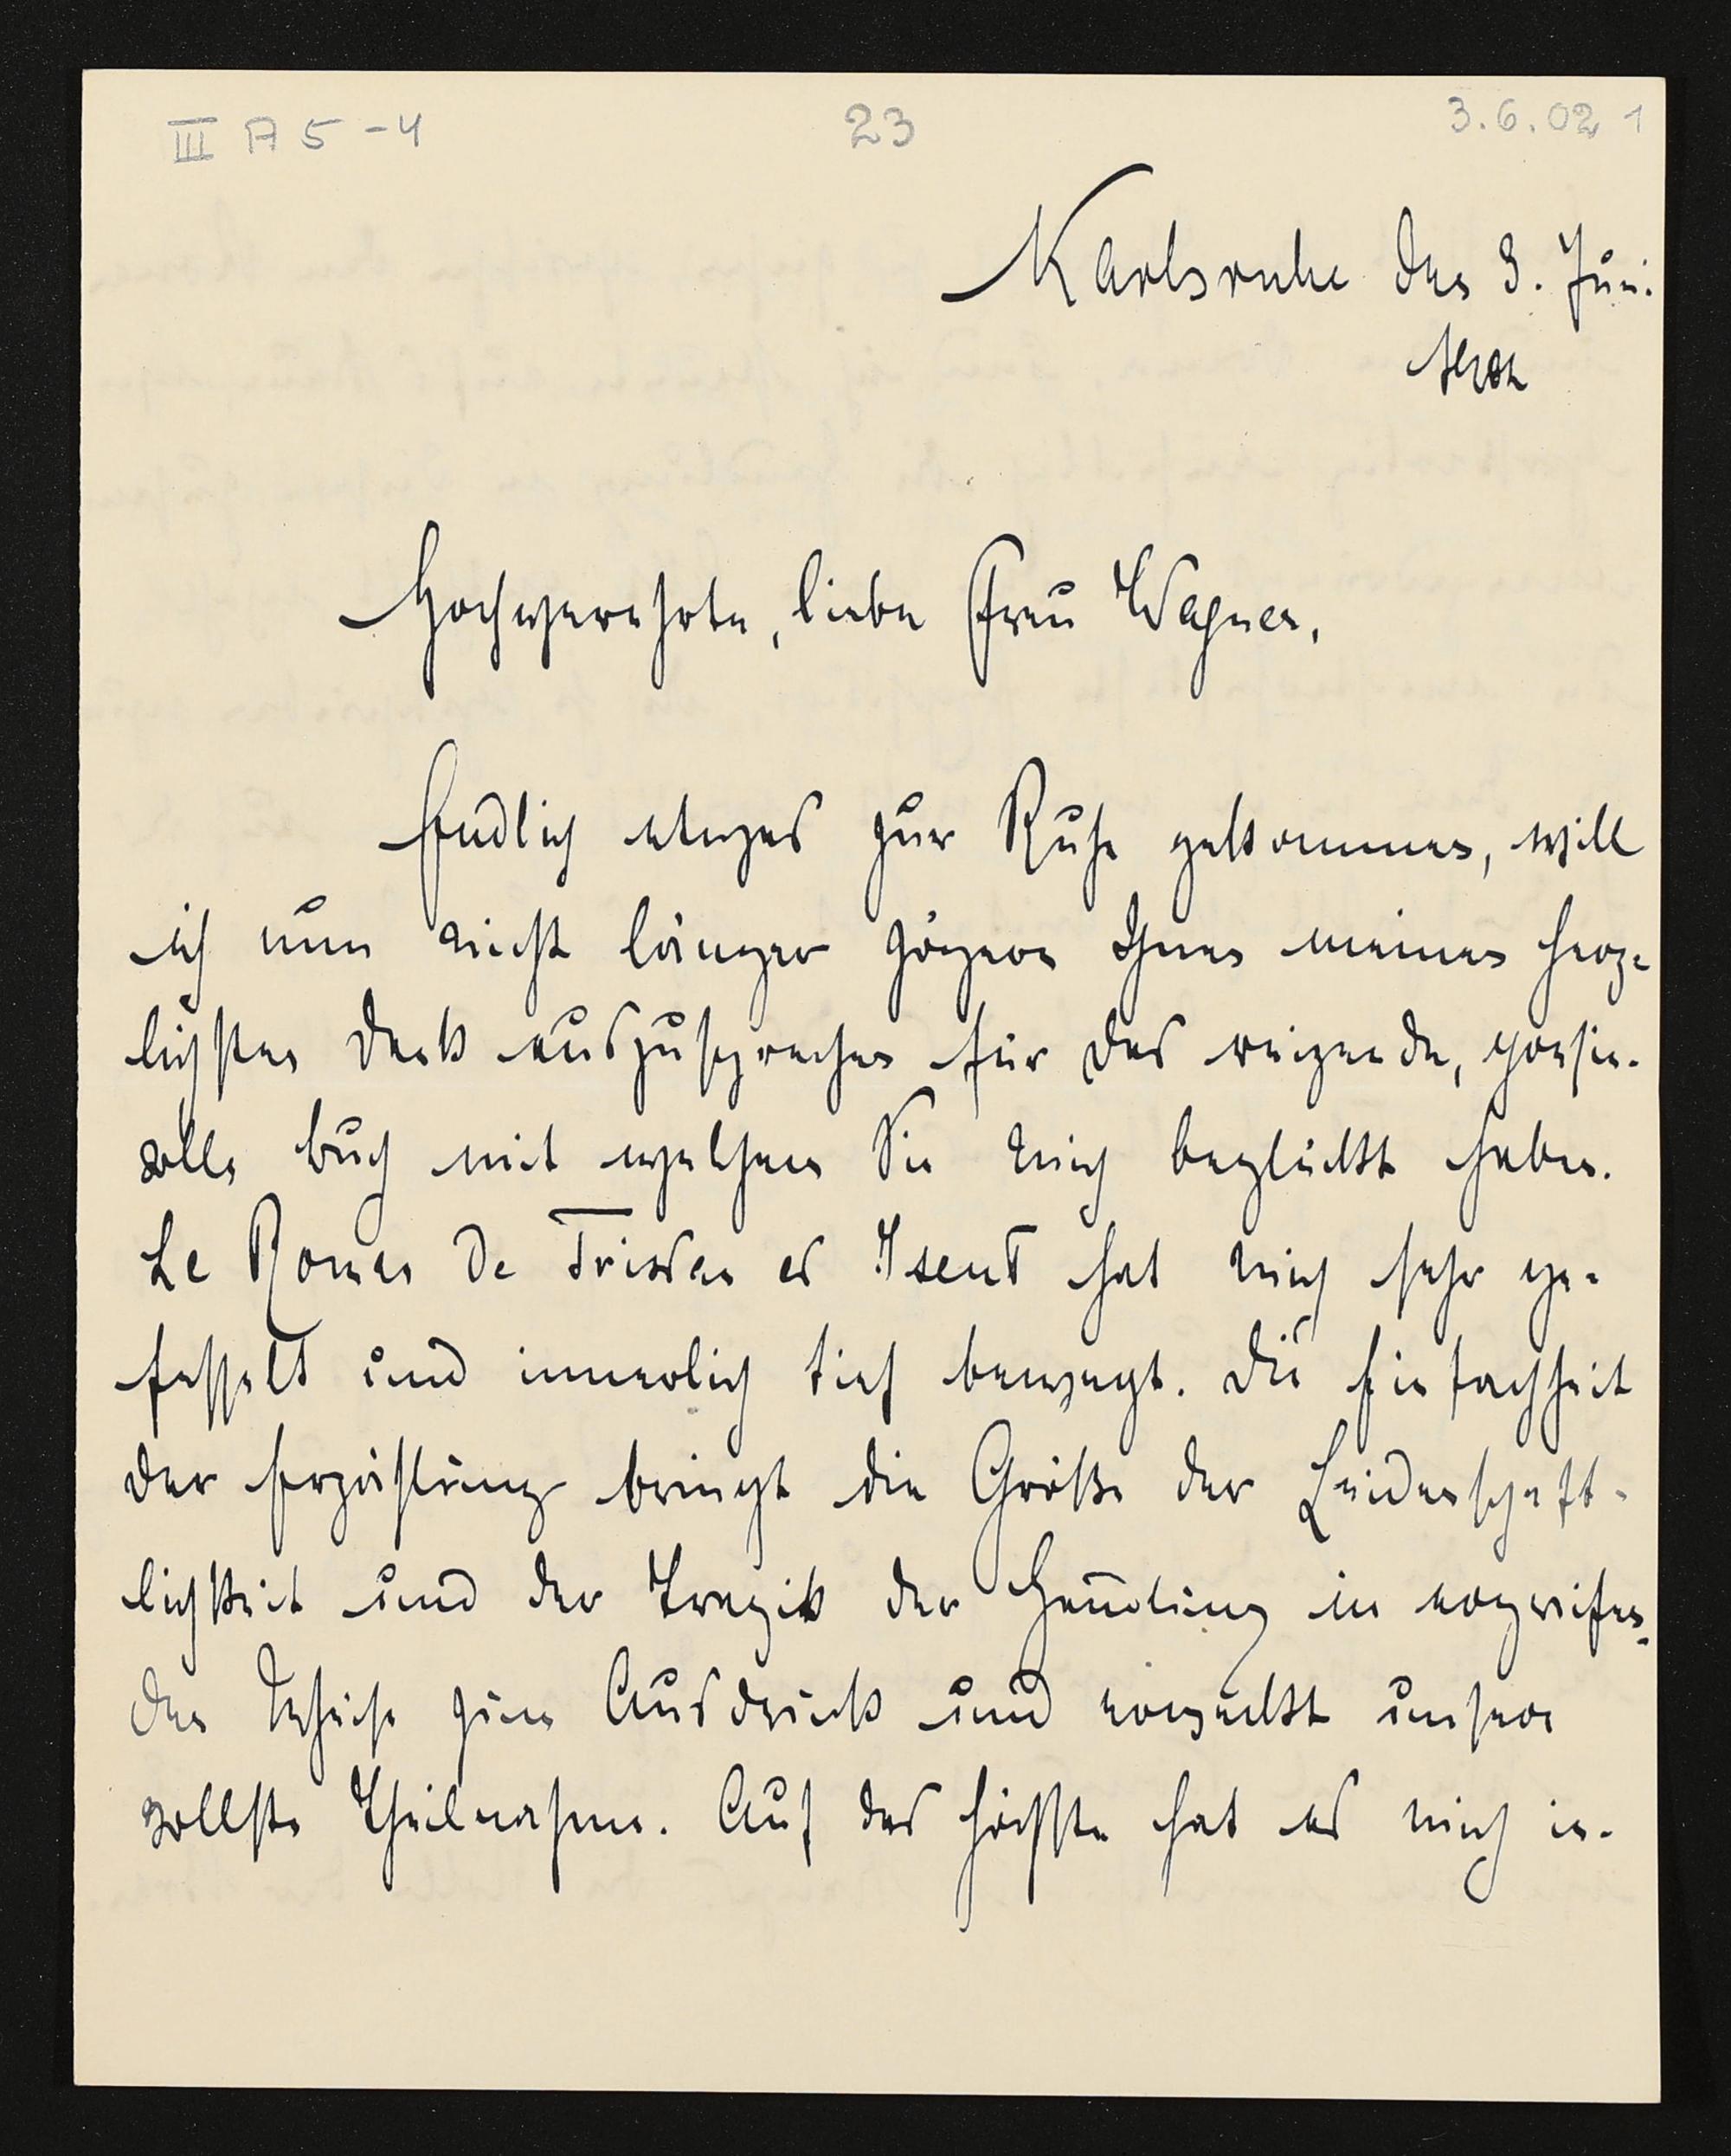 III A 5 - 4
23
3.6.02 1
Karlsruhe den 3. Juni
1902
Hochverehrte, liebe Frau Wagner,
Endlich etwas zur Ruhe gekommen, will
ich nun nicht länger zögern Ihnen meinen herz-
lichsten Dank auszusprechen für das reizende, poesie-
volle buch mit welchem Sie mich beglückt haben.
Le Roman de Tristan et Iseut hat mich sehr ge-
fesselt und innerlich tief bewegt. Die Einfachheit
der Erzählung bringt die Größe der Leidenschaft-
lichkeit und der Tragik der Handlung in ergreifen-
der Weise zum Ausdruck und erweckt unsere
vollste Theilnahme. Auf das höchste hat es mich in-